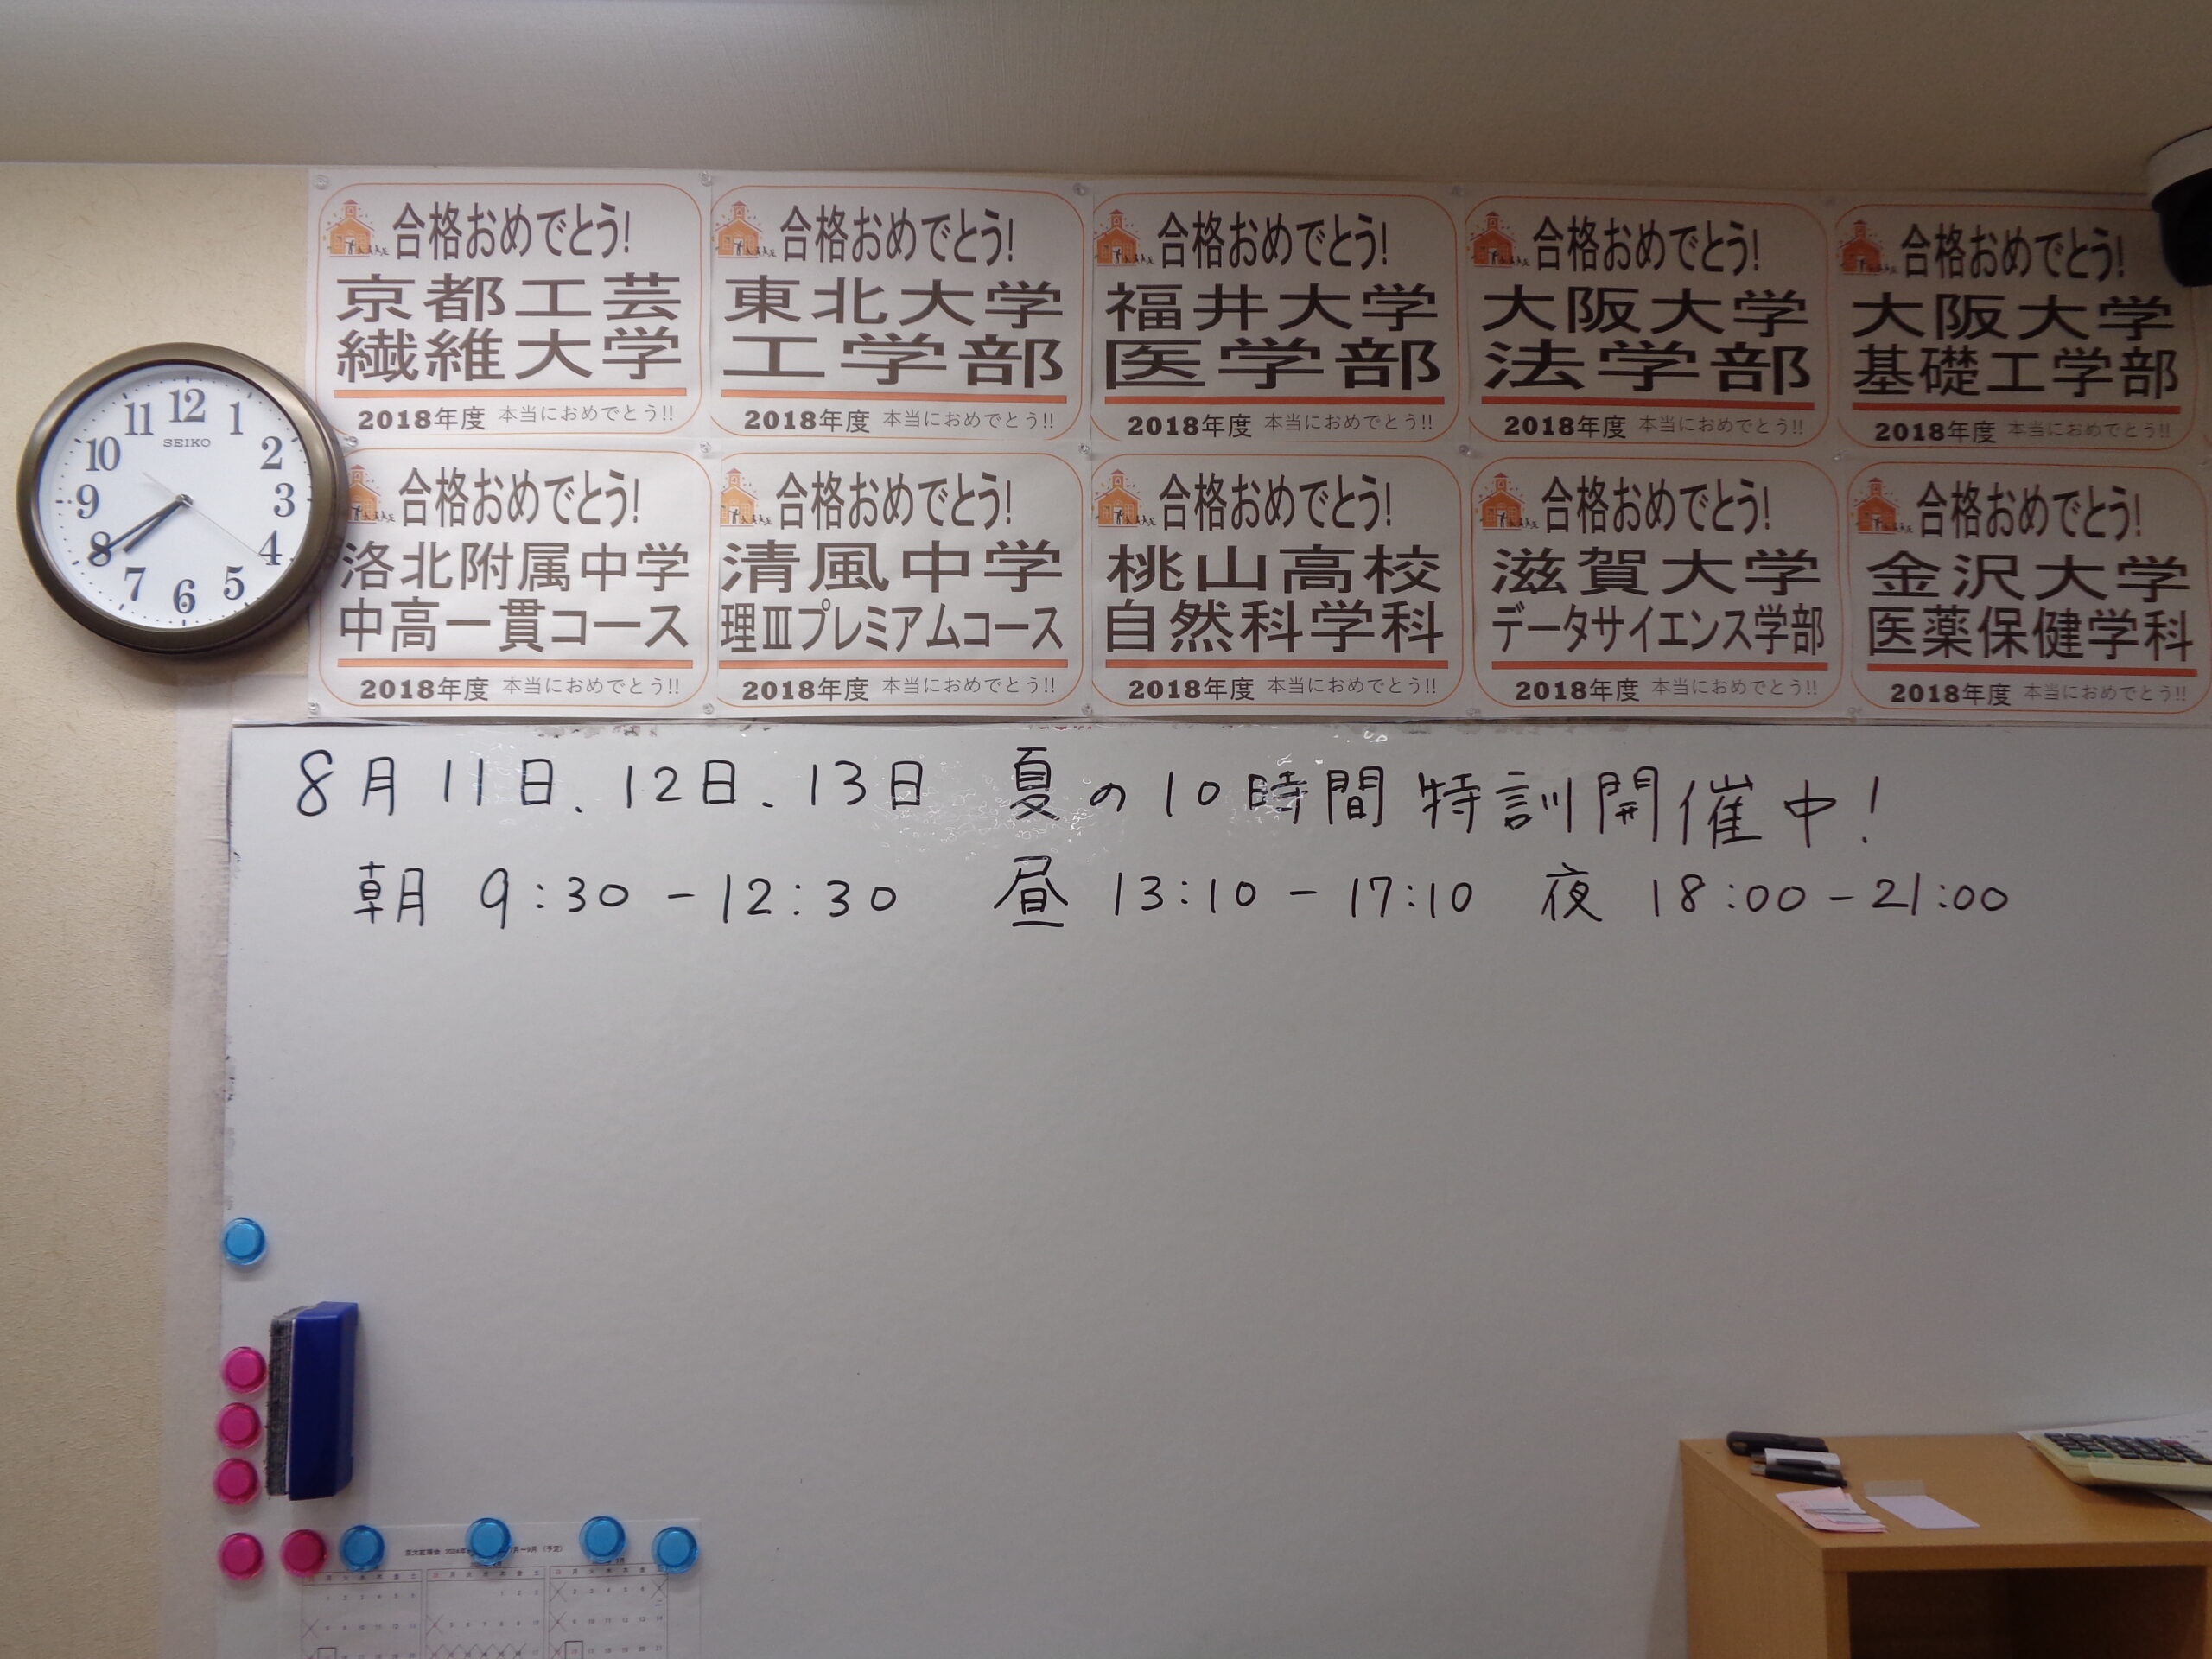 12
1
2
3
4
5
6
7
8
9
10
11
SEIKO
合格おめでとう!
京都工芸
繊維大学
2018年度 本当におめでとう!!
合格おめでとう!
東北大学
工学部
2018年度 本当におめでとう!!
合格おめでとう!
福井大学
医学部
2018年度 本当におめでとう!!
合格おめでとう!
大阪大学
法学部
2018年度 本当におめでとう!!
合格おめでとう!
大阪大学
基礎工学部
2018年度 本当におめでとう!!
合格おめでとう!
洛北附属中学
中高一貫コース
2018年度 本当におめでとう!!
合格おめでとう!
清風中学
理Ⅲプレミアムコース
2018年度 本当におめでとう!!
合格おめでとう!
桃山高校
自然科学科
2018年度 本当におめでとう!!
合格おめでとう!
滋賀大学
データサイエンス学部
2018年度 本当におめでとう!!
合格おめでとう!
金沢大学
医薬保健学科
2018年度 本当におめでとう!!
8月11日、12日、13日 夏の10時間特訓開催中!
朝 9:30-12:30 昼 13:10-17:10 夜 18:00-21:00